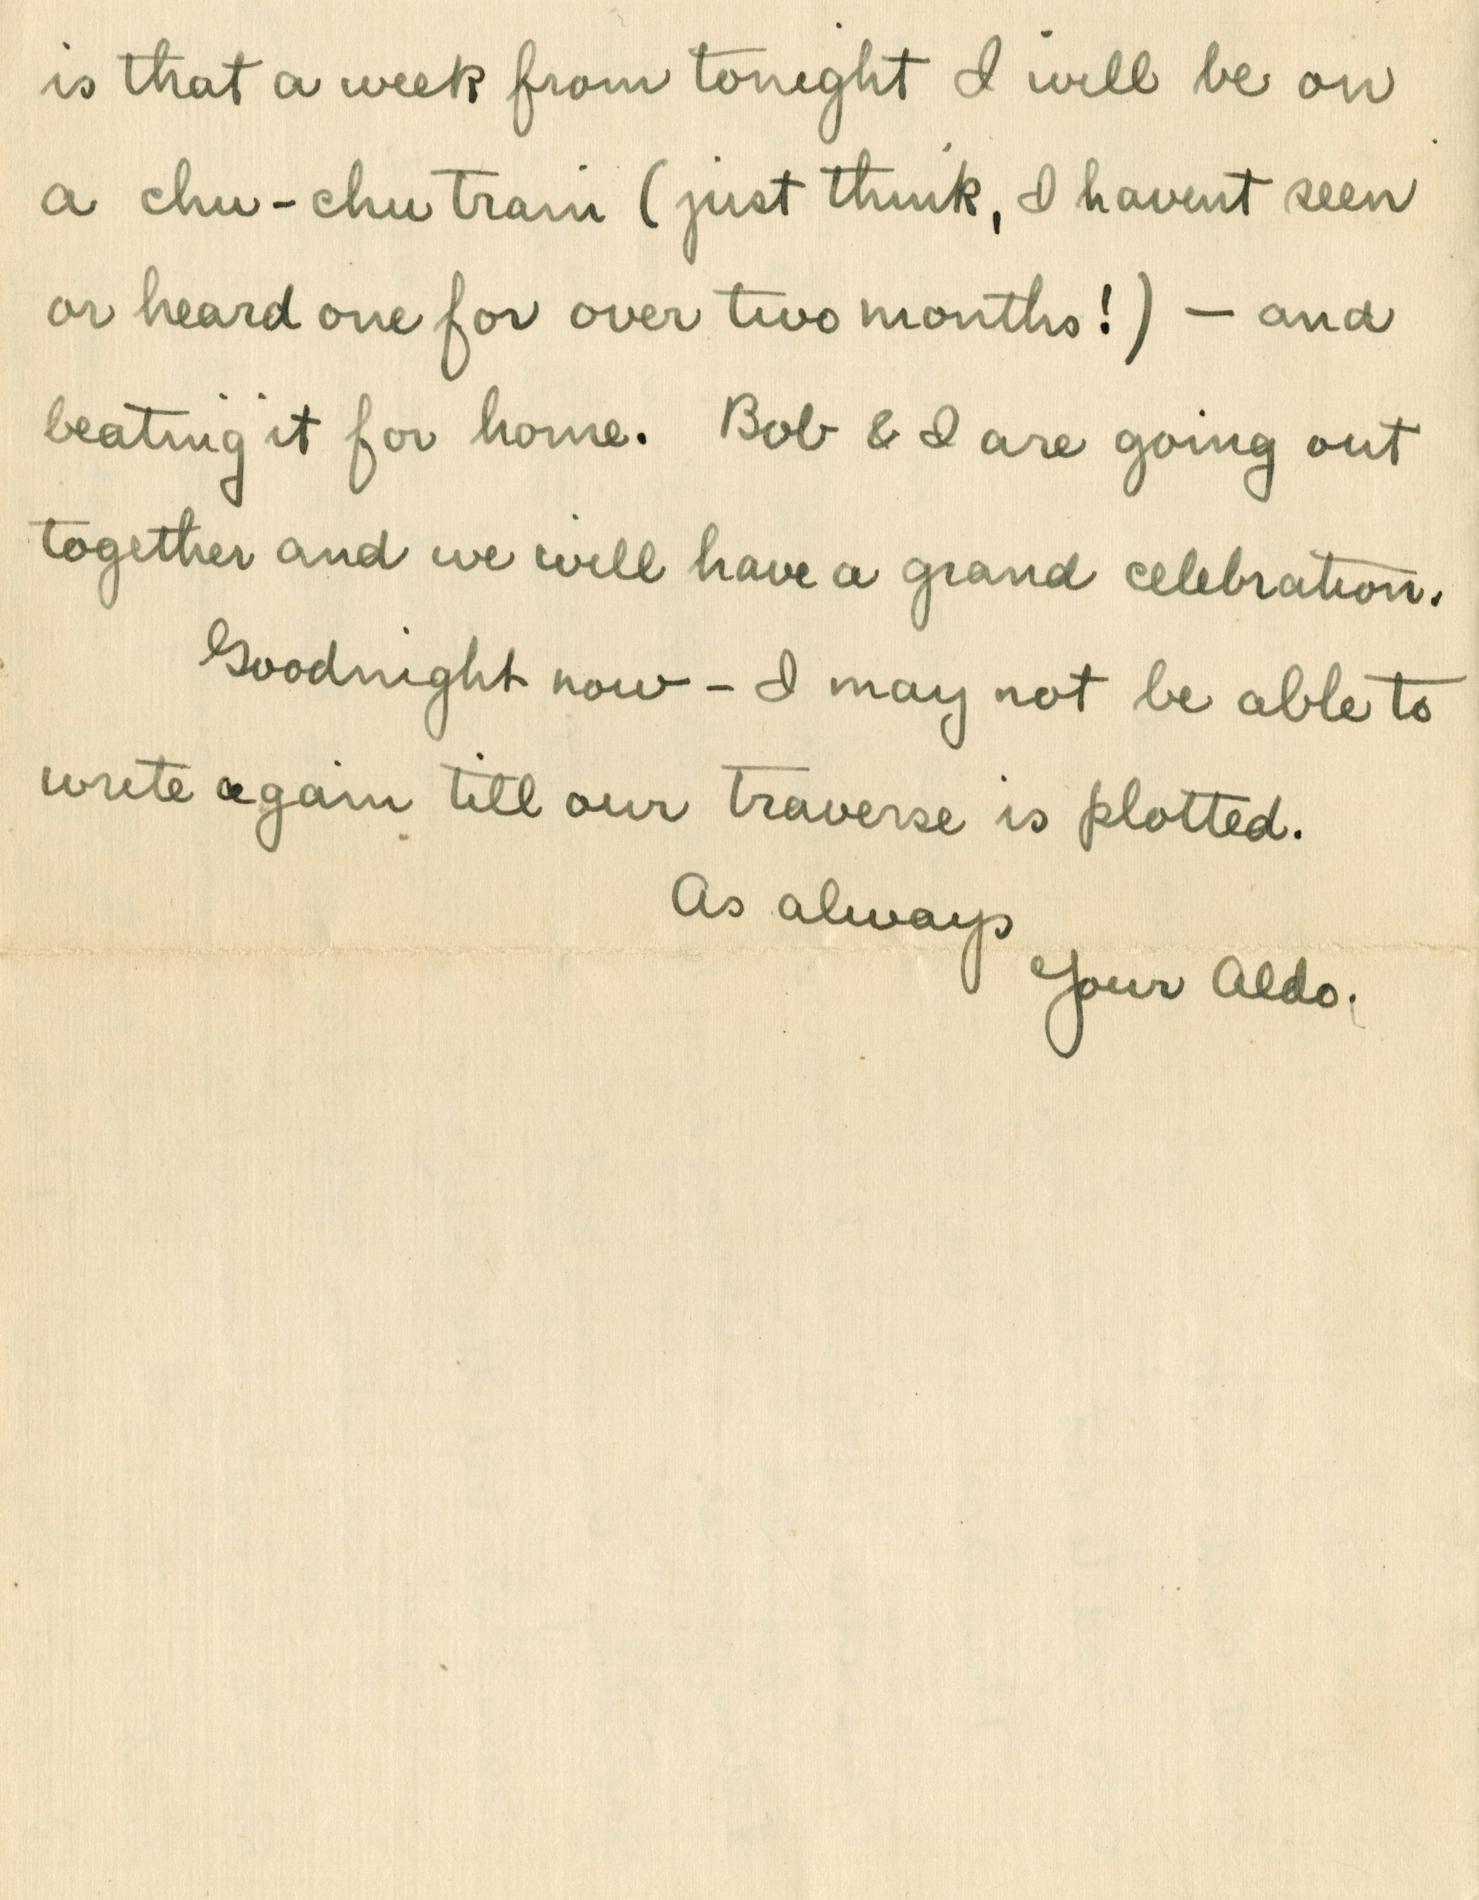 is that a week from tonight I will be on
a chu-chu train (just think, I havent seen
or heard one for over two months!) — and
beating it for home. Bob & I are going out
together and we will have a grand celebration.
Goodnight now – I may not be able to
write again till our traverse is plotted.
As always
Your Aldo.